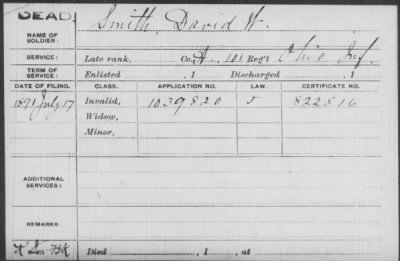 DEAD
NAME OF SOLDIER: Smith, David W.
SERVICE: Late rank, Co. A, 101 Reg't Ohio Inf.
TERM OF SERVICE: Enlisted , 1 Discharged , 1
DATE OF FILING. CLASS. APPLICATION NO. LAW. CERTIFICATE NO.
1891 July 17 Invalid, 1039,820 J 822516
Widow,
Minor,
ADDITIONAL SERVICES:
REMARKS:
Died , 1 , at